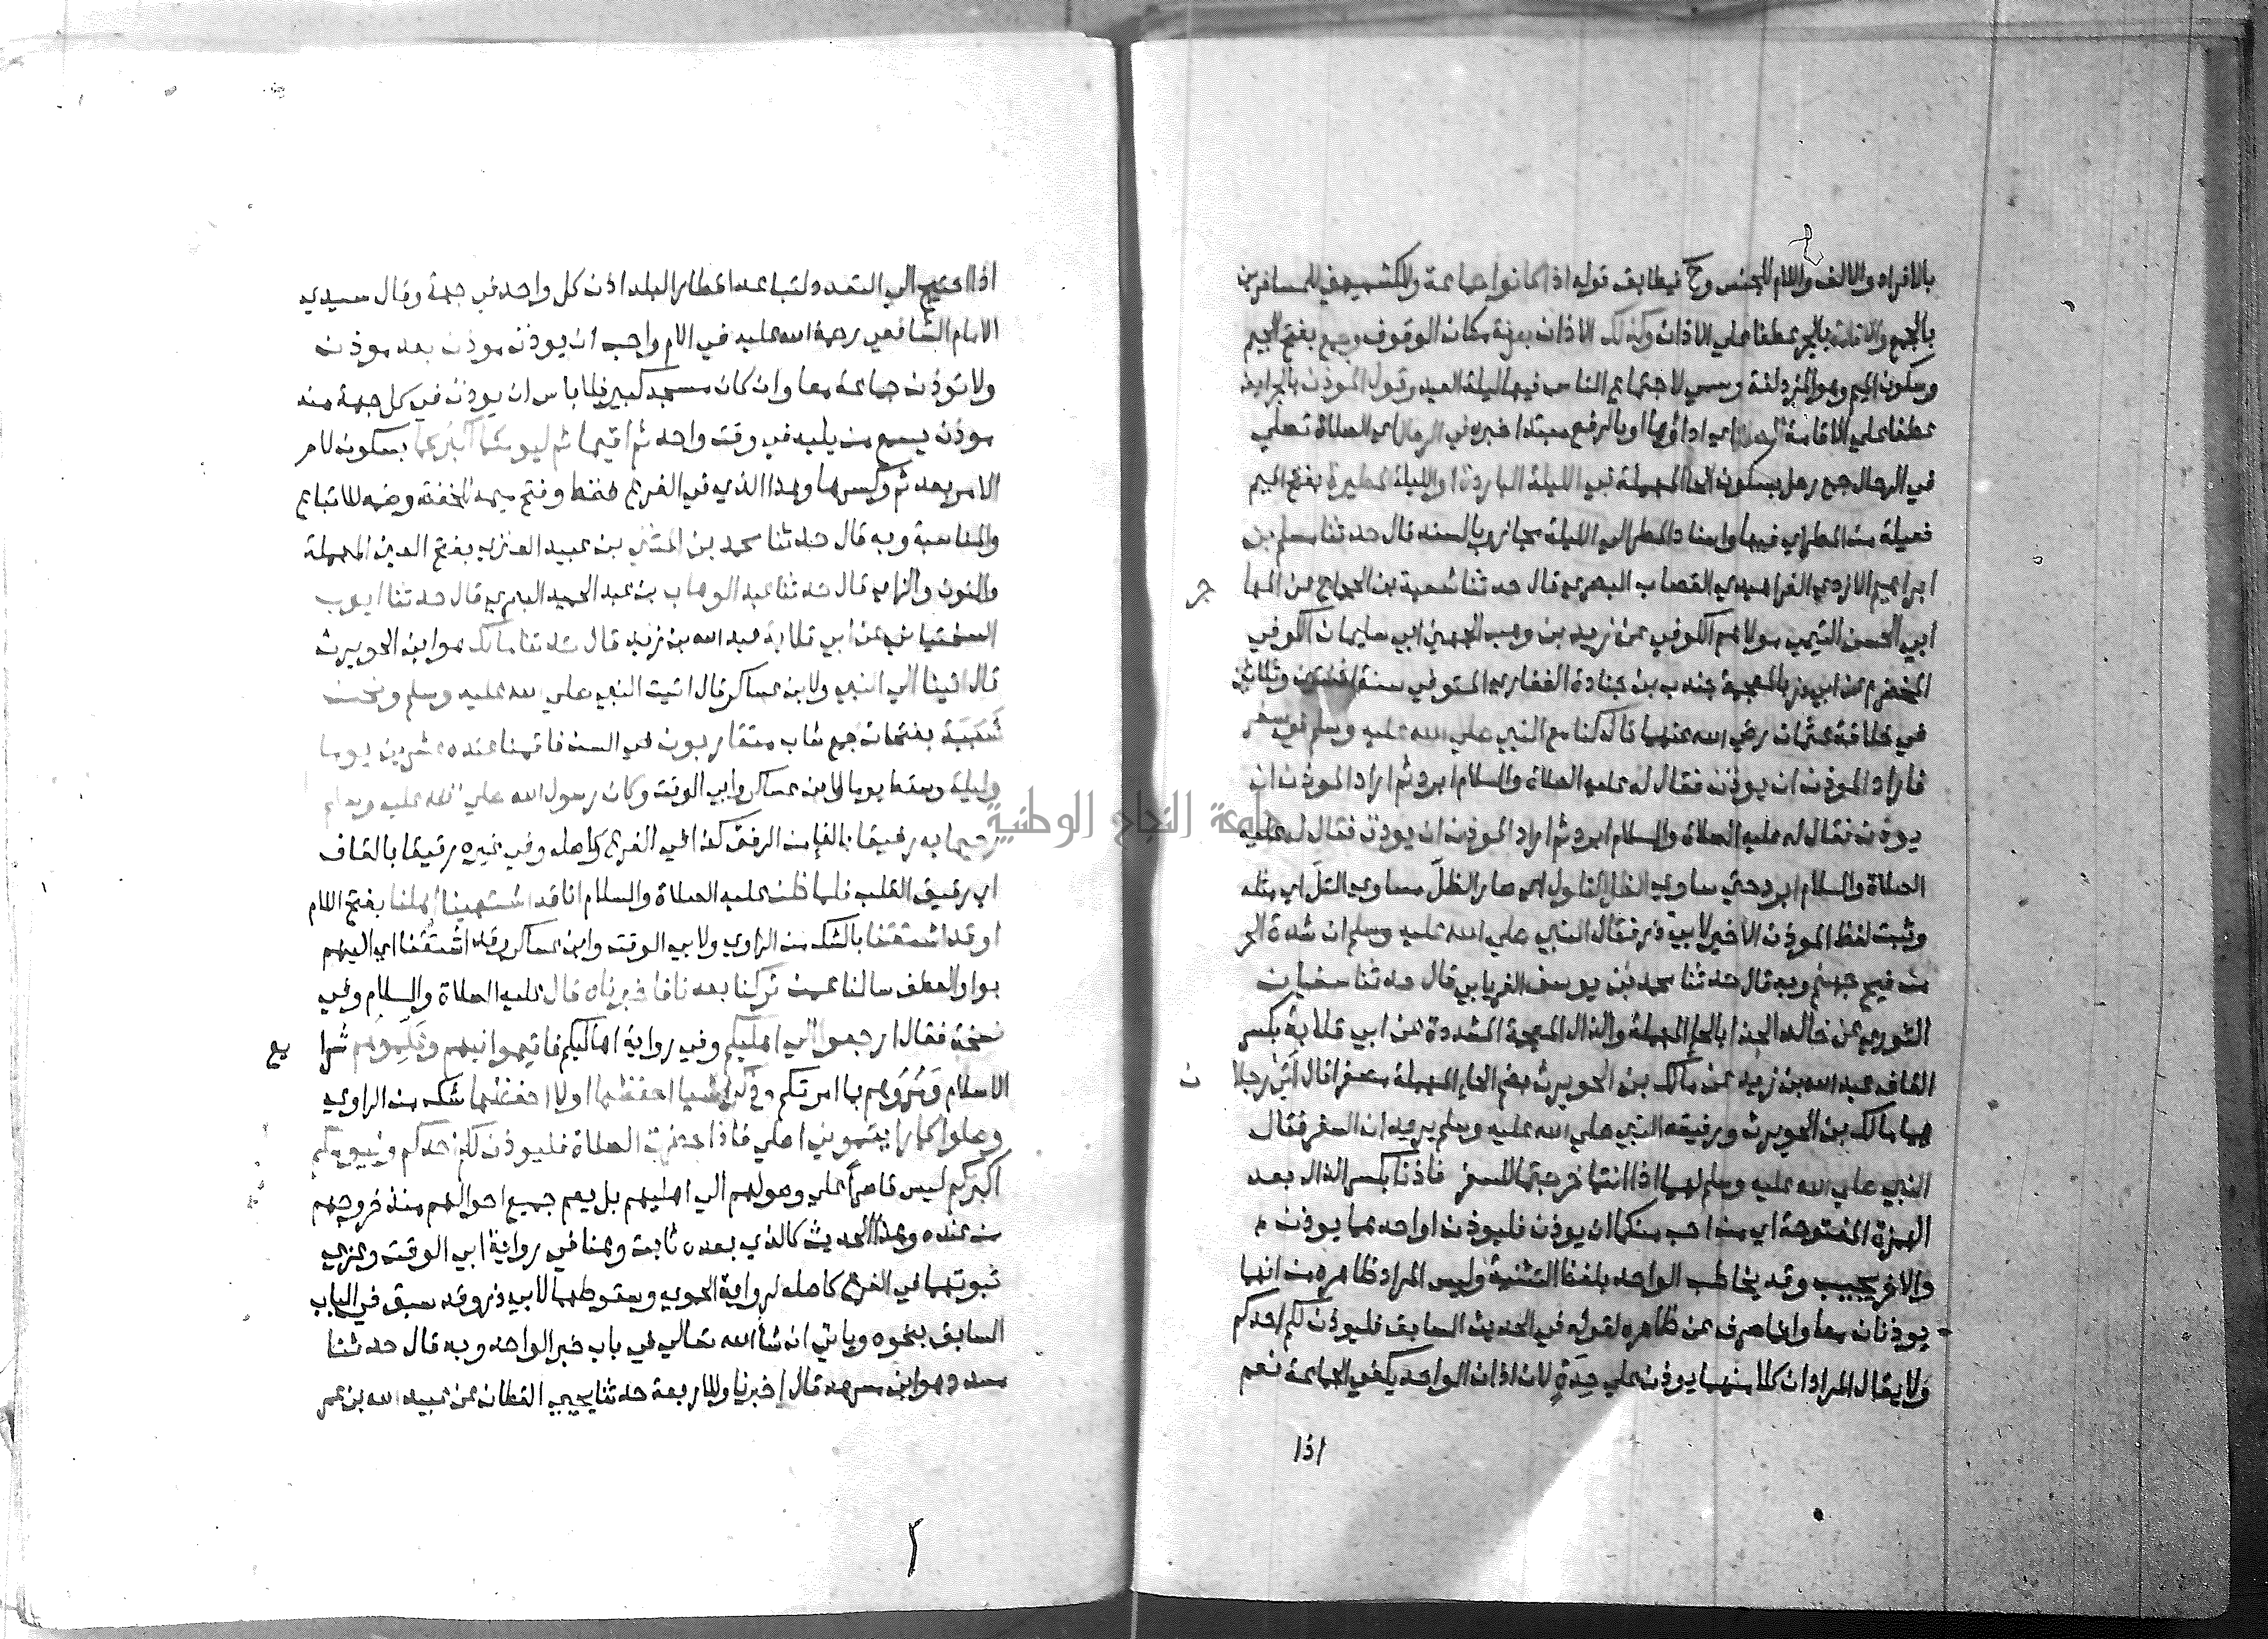 بالافراد والالف واللام للجنس وح فيطابق قوله اذا كانوا جماعة وللكشميهني للمسافرين
بالجمع والاقامة بالجر عطفا علي الاذان وكذلك الاذان بعرفة مكان الوقوف وجمع بفتح الجيم
وسكون الميم وهو المزدلفة وسمي لاجتماع الناس فيها ليلة العيد وقول الموذن بالجر ايضا
عطفا علي الاقامة الصلاة اي اداوها او بالرفع مبتدا خبره في الرحال اي الصلاة تصلي
في الرحال جمع رحل بسكون الحا المهملة في الليلة الباردة او الليلة المطيرة بفتح الميم
فعيلة من المطر اي فيها واسناد المطر الي الليلة مجاز وبالسند قال حدثنا مسلم بن
ابراهيم الازدي الفراهيدي القصاب البصري قال حدثنا شعبة بن الحجاج عن المها
جر
ابي الحسن التيمي مولاهم الكوفي عن زيد بن وهب الجهني ابي سليمان الكوفي
المخضرم عن ابي ذر بالمعجمة جندب بن جنادة الغفاري المتوفي سنة اثنتين وثلاثين
في خلافة عثمان رضي الله عنهما قال كنا مع النبي صلي الله عليه وسلم في سفر
فاراد الموذن ان يوذن فقال له عليه الصلاة والسلام ابرد ثم اراد الموذن ان
يوذن فقال له عليه الصلاة والسلام ابرد ثم اراد الموذن ان يوذن فقال له عليه
الصلاة والسلام ابرد حتي ساوي الظل التلول اي صار الظل مساوي التل اي مثله
وثبت لفظ الموذن الاخير لابي ذر فقال النبي صلي الله عليه وسلم ان شدة الحر
من فيح جهنم وبه قال حدثنا محمد بن يوسف الفريابي قال حدثنا سفيان
الثوري عن خالد الحذا بالحا المهملة والذال المعجمة المشددة عن ابي قلابة بكسر
القاف عبد الله بن زيد عن مالك بن الحويرث بضم الحا المهملة مصغرا قال اتي رجلان
هما مالك بن الحويرث ورفيقه النبي صلي الله عليه وسلم يريدان السفر فقال
النبي صلي الله عليه وسلم لهما اذا انتما خرجتما للسفر فاذنا بكسر الذال بعد
الهمزة المفتوحة اي من احب منكما ان يوذن فليوذن او احدهما يوذن
والاخر يجيب وقد يخاطب الواحد بلفظ التثنية وليس المراد ظاهره من انهما
يوذنان معا وانما صرف عن ظاهره لقوله في الحديث السابق فليوذن لكم احدكم
ولا يقال المراد ان كلا منهما يوذن علي حدة لان اذان الواحد يكفي الجماعة نعم
اذا
اذا احتيج الي التعدد لتباعد اقطار البلد اذن كل واحد في جهة وقال سيدي
الامام الشافعي رحمة الله عليه في الام واجب ان يوذن موذن بعد موذن
ولا توذن جماعة معا وان كان مسجد كبير فلا باس ان يوذن في كل جهة منه
موذن يسمع من يليه في وقت واحد ثم اقيما ثم ليومكما اكبركما بسكون لام
الامر بعد ثم وكسرها وهذا الذي في الفرع فقط وفتح ميمه للخفة وضمه للاتباع
والمناسبة وبه قال حدثنا محمد بن المثني بن عبيد العنزي بفتح العين المهملة
والنون والزاي قال حدثنا عبد الوهاب بن عبد الحميد البصري قال حدثنا ايوب
السختياني عن ابي قلابة عبد الله بن زيد قال حدثنا مالك هو ابن الحويرث
قال اتينا الي النبي ولابن عساكر قال اتيت النبي صلي الله عليه وسلم ونحن
شببة بفتحات جمع شاب متقاربون في السن فاقمنا عنده عشرين يوما
وليلة وسقط يوما لابن عساكر وابي الوقت وكان رسول الله صلي الله عليه وسلم
رحيما به رفيقا بالفا من الرفق كذا في الفرع كاصله وفي غيره رقيقا بالقاف
اي رقيق القلب فلما ظن عليه الصلاة والسلام انا قد اشتهينا اهلنا بفتح اللام
او قد اشتقنا بالشك من الراوي ولابي الوقت وابن عساكر وقد اشتقنا اي اليهم
بواو العطف سالنا عمن تركنا بعدنا فاخبرناه قال عليه الصلاة والسلام وفي
نسخة فقال ارجعوا الي اهليكم وفي رواية اهاليكم فاقيموا فيهم وعلموهم شرا
يع
الاسلام ومروهم بما امرتكم وذكر اشيا احفظها او لا احفظها شك من الراوي
وصلوا كما رايتموني اصلي فاذا حضرت الصلاة فليوذن لكم احدكم وليومكم
اكبركم ليس قاصرا علي وصولهم الي اهليهم بل يعم جميع احوالهم منذ خروجهم
من عنده وهذا الحديث كالذي بعده ثابت وهنا في رواية ابي الوقت وعزي
ثبوتهما في الفرع كاصله لرواية الحموي وسقوطهما لابي ذر وقد سبق في الباب
السابق بنحوه وياتي ان شا الله تعالي في باب خبر الواحد وبه قال حدثنا
مسدد هو ابن مسرهد قال اخبرنا وللاربعة حدثنا يحيي القطان عن عبيد الله بن عمر
جامعة النجاح الوطنية